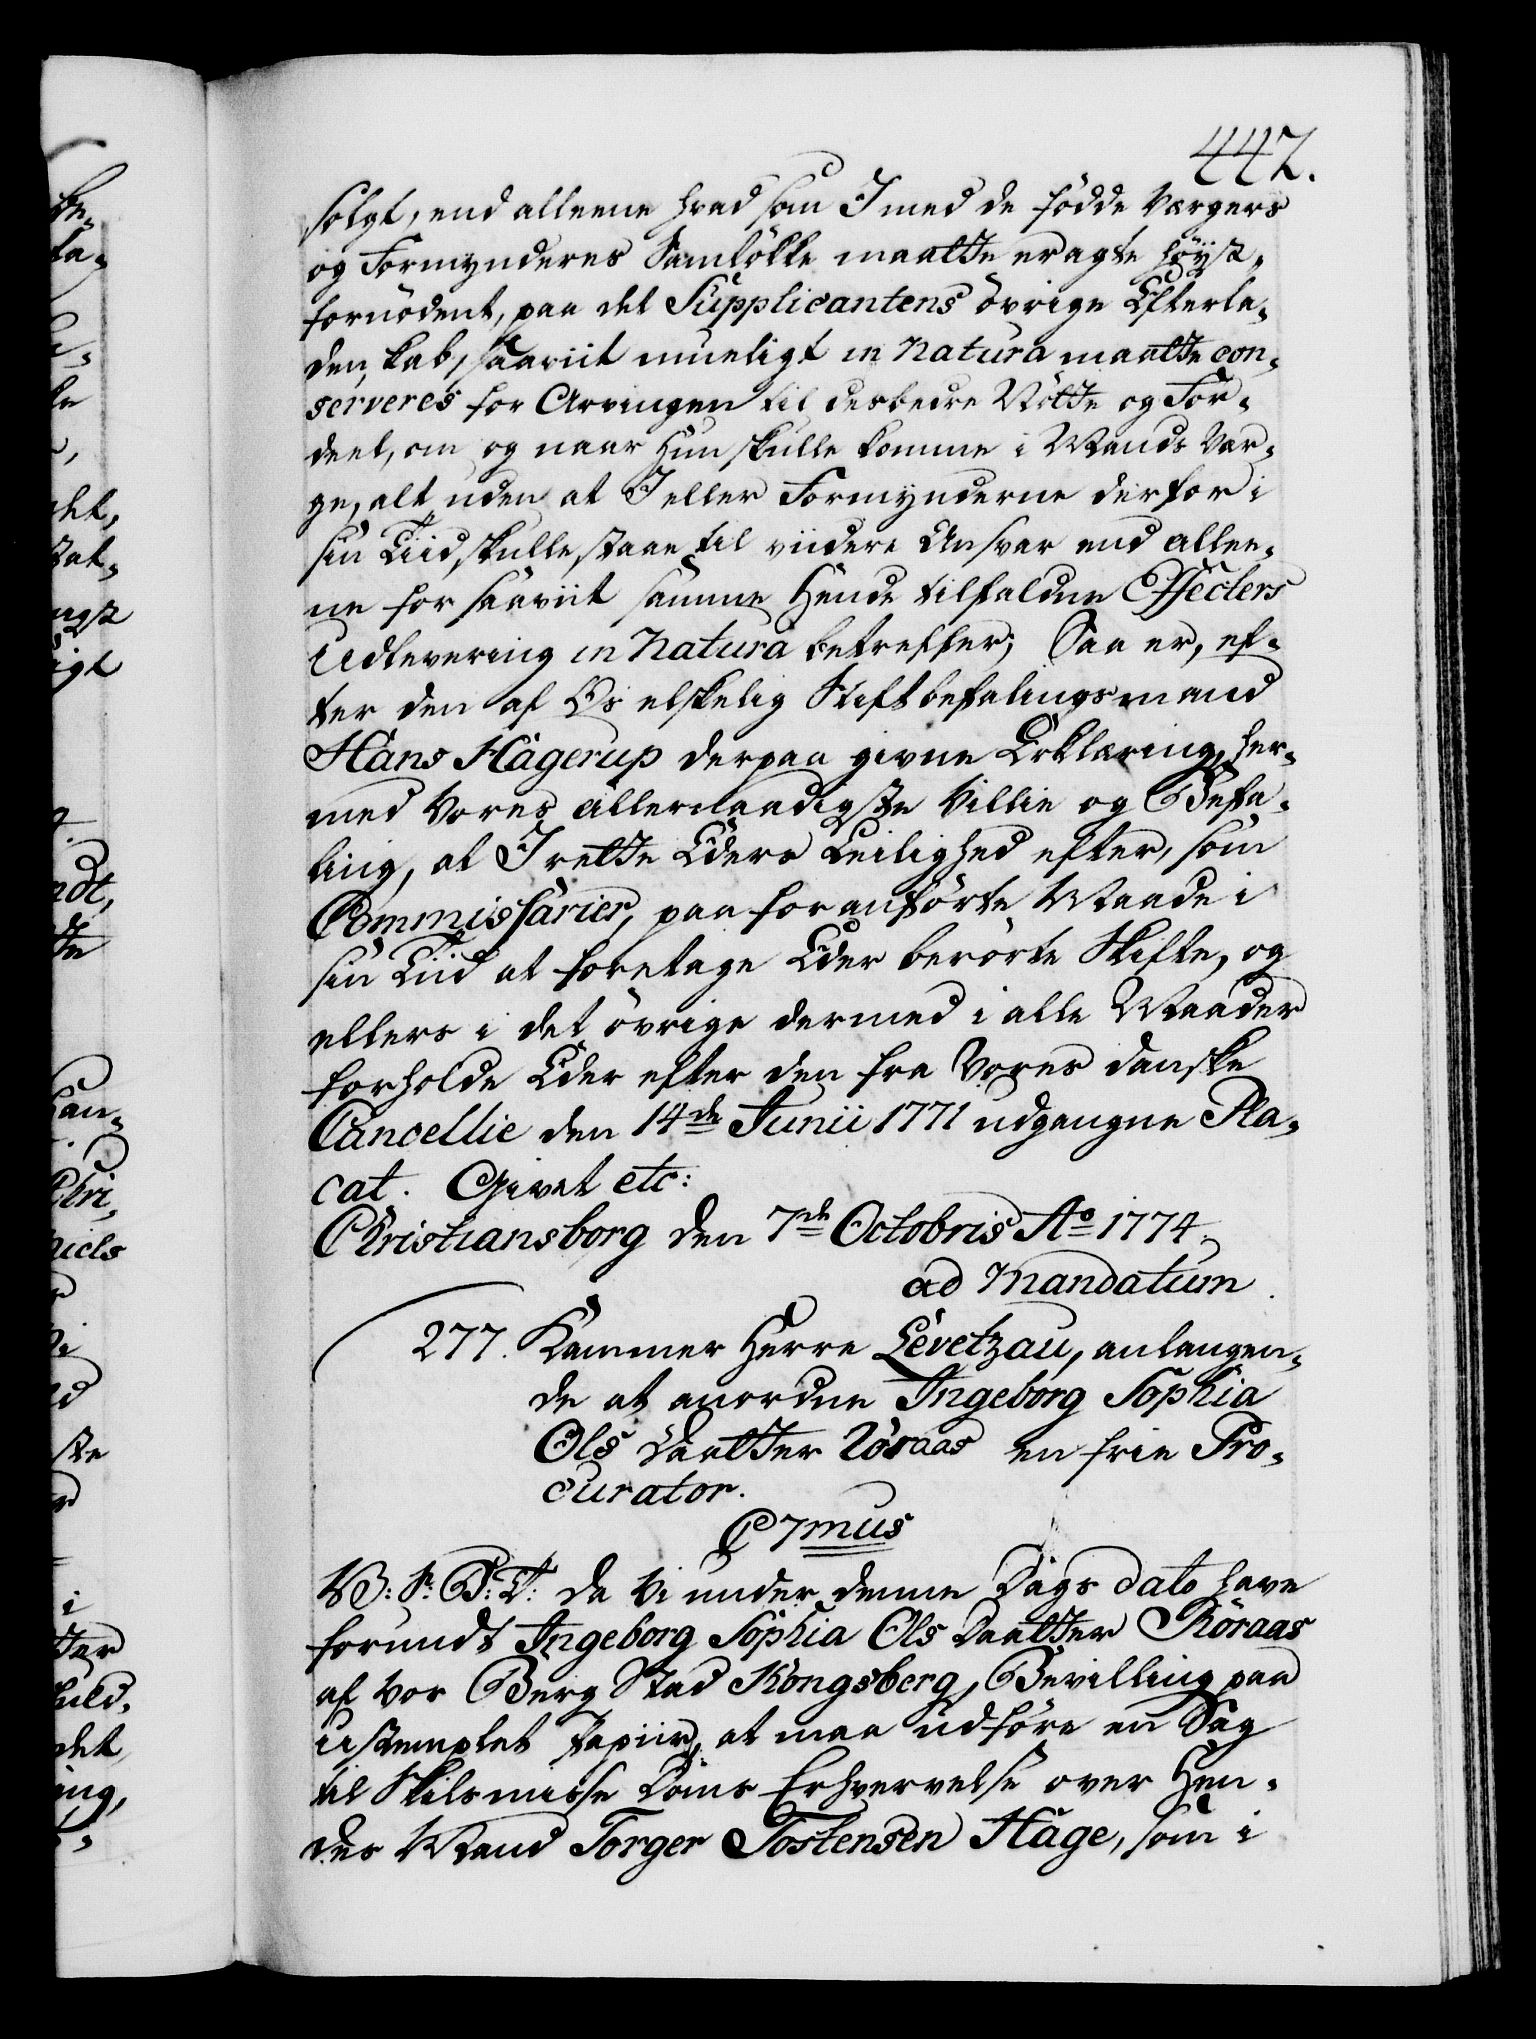 442.
solgt, end alleene hvad som I med de fødde Værgers
og Formynderes Samtøkke maatte eragte høyst-
fornødent, paa det Supplicantens øvrige Efterla-
denskab, saaviit mueligt in Natura maatte con-
serveres for Arvingen til desbedre Nøtte og For-
deel, om og naar Hun skulle komme i Mands Vær-
ge, alt uden at I eller Formynderne derfor i
sin Tiid skulle staae til viidere Ansvar end alle-
ne for saaviit samme Hende tilfaldne Effecters
Udlevering in Natura betreffer; Saa er, ef-
ter den af Os elskelig Stiftbefalingsmand
Hans Hagerup derpaa givne Erklæring, her-
med Vores allernaadigste Villie og Befa-
ling, at I rette Eders Leilighed efter, som
Commissarier, paa foranførte Maade i
sin Tiid at foretage Eder berørte Skifte, og
ellers i det øvrige dermed i alle Maader
forholde Eder efter den fra Vores danske
Cancellie den 14de Junii 1771 udgangne Pla-
cat. Givet etc:
Christiansborg den 7de Octobris Ao 1774.
ad Mandatum
277. Kammer Herre Levetzau, anlangen-
de at anordne Ingeborg Sophia
Ols Daatter Röraas en frie Pro-
curator.
C 7mus
V: S: B: T: da Vi under denne Dags dato have
forundt Ingeborg Sophia Ols Daatter Röraas
af Vor Berg Stad Kongsberg, Bevilling paa
ustemplet Papiir, at maa udføre en Sag
til Skilsmisse Doms Erhvervelse over Hen-
des Mand Torger Tostensen Hage, som i